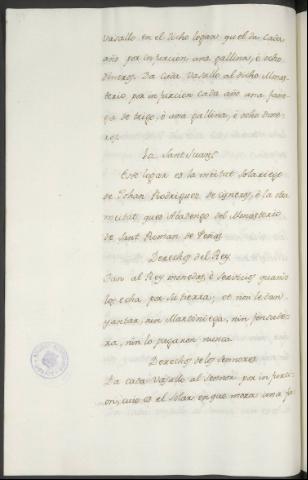 vasallo en el dicho logar, quel da cada
año por infurcion una gallina, è ocho
dineros. Da cada vasallo al dicho Monas-
terio, por infurcion cada año una fane-
ga de trigo, è una gallina, è ocho dine-
ros.
Este logar es la meitat solariego
de Johan Rodriguez de Cisneros, è la otra
meitat, que es Abadengo del Monasterio
de Sant Roman de Peñas
Derechos del Rey
Dan al Rey monedas, è servicios quando
los echa por su tierra, et non le dan
yantar, nin Martiniega, nin fonsade-
ra, nin lo pagaron nunca.
Derechos de los Sennores
Da cada vasallo al Sennor por infurci-
on, cuio es el solar, en que mora una fa-